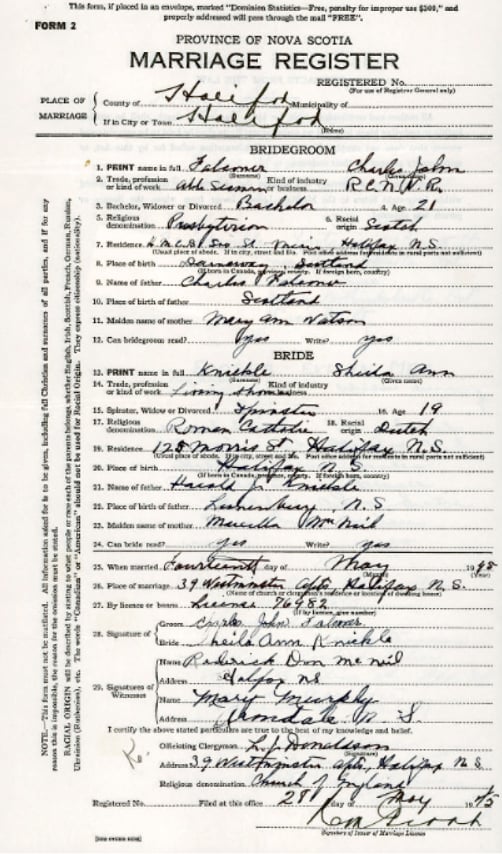 This form, if placed in an envelope, marked "Dominion Statistics—Free, penalty for improper use $300," and
properly addressed will pass through the mail "FREE".
FORM 2
PROVINCE OF NOVA SCOTIA
MARRIAGE REGISTER
REGISTERED No.
(For use of Registrar General only)
PLACE OF MARRIAGE
County of Halifax Municipality of
If in City or Town Halifax
BRIDEGROOM
1. PRINT name in full Falconer Charles John
(Surname)
2. Trade, profession or kind of work Able Seaman Kind of industry or business R.C.N.V.R.
3. Bachelor, Widower or Divorced Bachelor 4. Age 21
5. Religious denomination Presbyterian 6. Racial origin Scotch
7. Residence Halifax N.S.
(Usual place of abode. If in city, street and No. Post office address for residents in rural parts not sufficient)
8. Place of birth Scotland
(If born in Canada, province, county. If foreign born, country)
9. Name of father Charles Falconer
10. Place of birth of father Scotland
11. Maiden name of mother Mary Ann Watson
12. Can bridegroom read? yes Write? yes
BRIDE
13. PRINT name in full Knickle Sheila Ann
(Surname) (Given name)
14. Trade, profession or kind of work Living at home Kind of industry or business
15. Spinster, Widow or Divorced Spinster 16. Age 19
17. Religious denomination Roman Catholic 18. Racial origin Dutch
19. Residence 128 Morris St Halifax N.S.
(Usual place of abode. If in city, street and No. Post office address for residents in rural parts not sufficient)
20. Place of birth Halifax N.S.
(If born in Canada, province, county. If foreign born, country)
21. Name of father Harold J. Knickle
22. Place of birth of father Lunenburg, N.S
23. Maiden name of mother Marcella McNeil
24. Can bride read? yes Write? yes
25. When married Fourteenth day of May 19
(Month) (Year)
26. Place of marriage 39 Westminster Apts. Halifax N.S.
(Name of church or clergyman's residence or location of dwelling house)
27. By licence or banns License 76982
(If by licence, give number)
28. Signature of
Groom Charles John Falconer
Bride Sheila Ann Knickle
29. Signatures of Witnesses
Name Roderick Don McNeil
Address Halifax NS
Name Mary Murphy
Address Armdale N.S.
I certify the above stated particulars are true to the best of my knowledge and belief.
Officiating Clergyman L. J. Donaldson
(Signature)
Address 39 Westminster Apts, Halifax N.S.
Religious denomination Church of England
Registered No. Filed at this office 28 day of May 19
Signature of Issuer of Marriage License
NOTE.—This form must not be mutilated. All information asked for is to be given, including full Christian and surnames of all parties, and if for any
reason this is impossible, the reason for the omission must be stated.
RACIAL ORIGIN will be described by stating to what people or race each of the parents belongs, whether English, Irish, Scottish, French, German, Russian,
Ukrainian (Ruthenian), etc. The words "Canadian" or "American" should not be used for Racial Origin. They express citizenship (nationality).